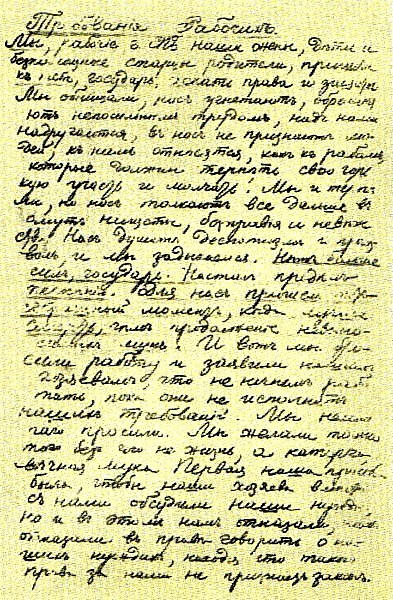 Требованія Рабочихъ.
Мы, рабочіе г. СПБ наши жены, дѣти и
безпомощные старцы родители, пришли
къ тебѣ, государь, искать права и защиты
Мы обнищали, насъ угнетаютъ, обременя
ютъ непосильнымъ трудомъ, надъ нами
надругаются, въ насъ не признаютъ лю-
дей, къ намъ относятся, какъ къ рабамъ,
которые должны терпѣть свою горь
кую участь и молчать. Мы и терпѣ
ли, но насъ толкаютъ все дальше въ
омутъ нищеты, безправія и невѣже
ства. Насъ душитъ деспотизмъ и произ
волъ, и мы задыхаемся. Нѣтъ больше
силъ, государь. Насталъ предѣлъ
терпѣнію. Для насъ пришелъ тотъ
страшный моментъ, когда лучше
смерть, чѣмъ продолженіе невыно-
симыхъ мукъ. И вотъ мы бро
сили работу и заявили нашимъ
хозяевамъ, что не начнемъ рабо
тать, пока они не исполнятъ
нашихъ требованій. Мы мало
чего просили. Мы желали только
того безъ чего не жизнь, а каторга
вѣчная мука. Первая наша просьба
была, чтобы наши хозяева вмѣстѣ
съ нами обсудили наши нужды,
но и въ этомъ намъ отказали, намъ
отказали въ правѣ говорить о на-
шихъ нуждахъ, находя, что такого
права за нами не признаетъ законъ.